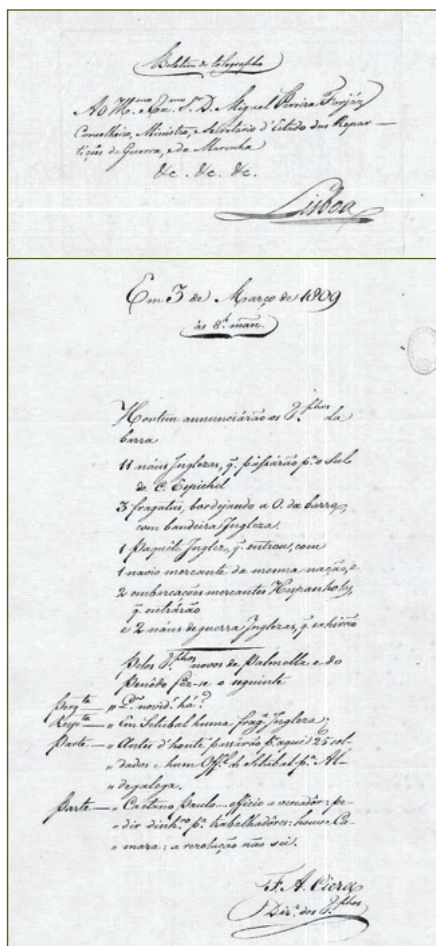 Boletim do telegrapho
Ao Ill.mo e Ex.mo S.r D. Miguel Pereira Forjáz
Conselheiro, Ministro, e Secretario d'Estado das Repar—
tições da Guerra, e da Marinha
&c. &c. &c.
Lisboa
Em 3 de Março de 1809
às 8.h man.
Hontem annunciárão os T.phos da
barra
11 náus Inglezas, q. passárão p.a o Sul
do C. Espichel
3 fragatas, bordejando a O. da barra,
com bandeira Ingleza.
1 Paquête Inglez, q. entrou, com
1 navio mercante da mesma nação, e
2 embarcações mercantes Hespanholas,
q. entrárão
e 2 náus de guerra Inglezas, q. sahirão
Pelos T.phos novos de Palmella e do
fez-se o seguinte
Perg.ta — " Q. novid.e há?
Resp.ta — " Em Setubal huma frag. Ingleza;
Parte — " Antes d'hontē passárão p. aqui 25 sol-
" dados e hum Off.al de Setubal p.a Al-
" degalega.
Parte — " Caetano Paulo... officio a vereador: pe-
" dir dinh.ro p.a trabalhadores: houve Ca-
" mara: a resolução não sei.
F. A. Ciera
Dir. dos T.phos